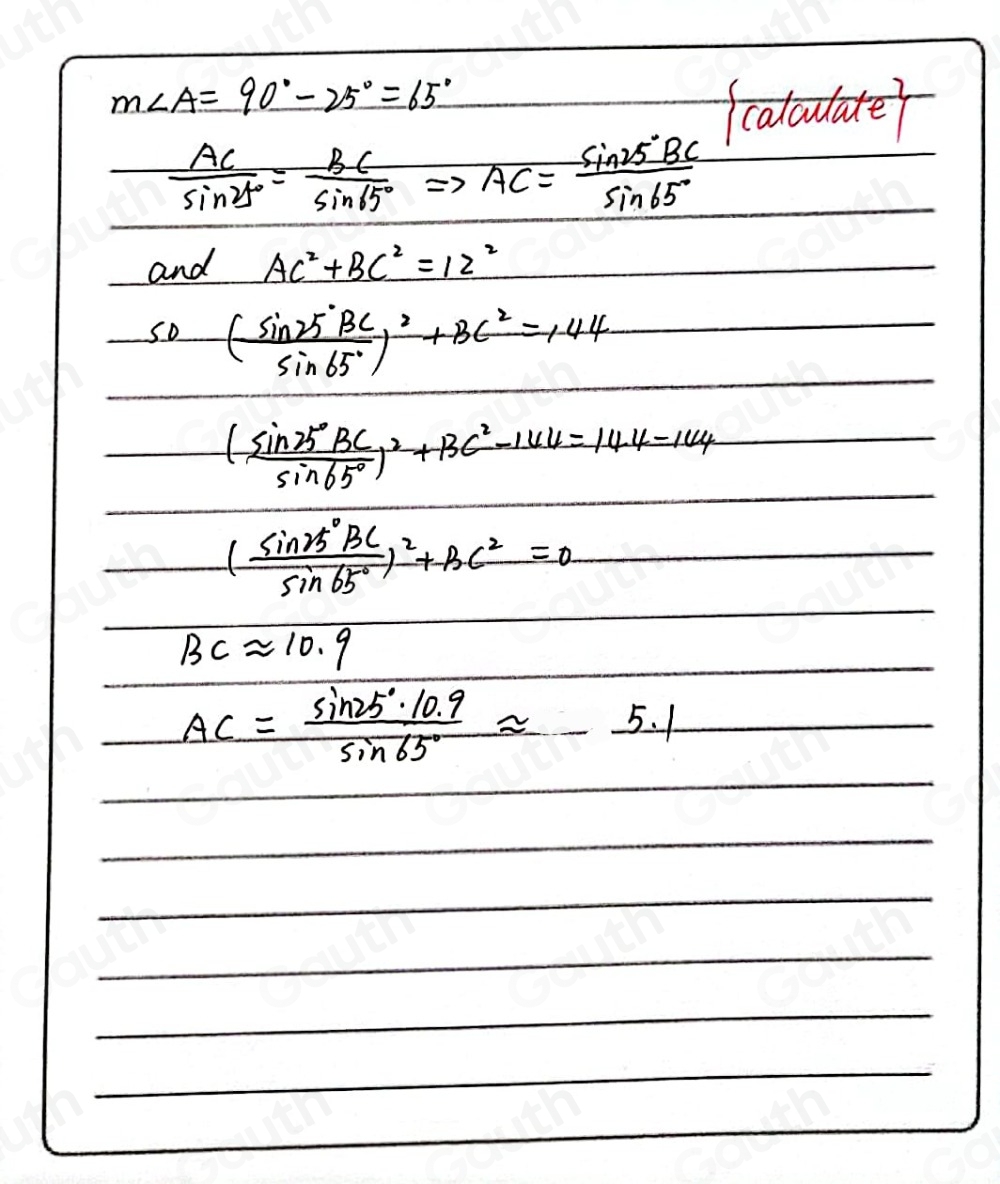 m∠A = 90° - 25° = 65°
{calculate}
AC/sin25° = BC/sin65° => AC = sin25°BC/sin65°
and AC² + BC² = 12²
so (sin25°BC/sin65°)² + BC² = 144
(sin25°BC/sin65°)² + BC² - 144 = 144 - 144
(sin25°BC/sin65°)² + BC² = 0
BC ≈ 10.9
AC = sin25°·10.9/sin65° ≈ 5.1
Gauth